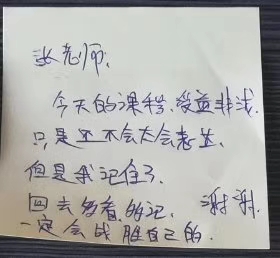 张老师，
今天的课程、受益非浅，
只是还不会大会表达、
但是我记住了
回去多看多记、谢谢
一定会战胜自己的.